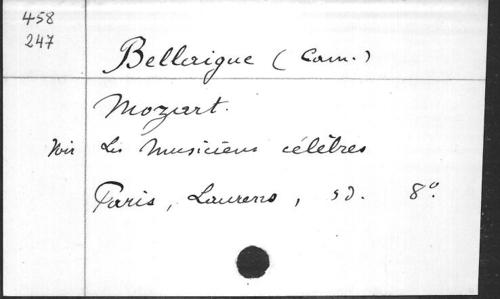 458
247
Bellaigue (Cam.)
Mozart.
Voir Les Musiciens célèbres
Paris, Laurens, sd. 8°.